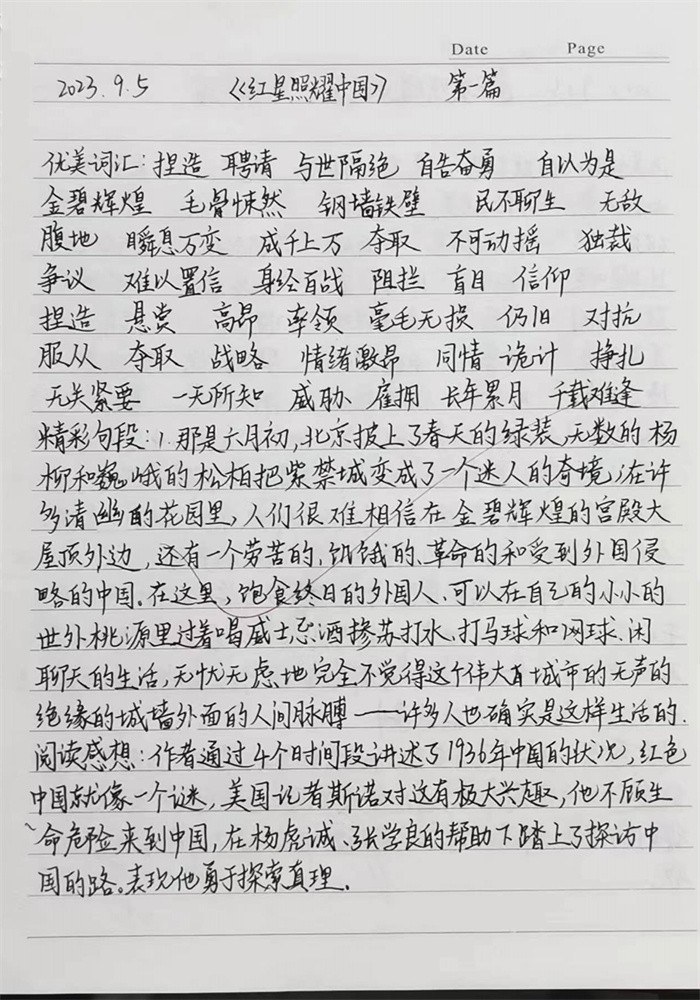 Date Page
2023.9.5 《红星照耀中国》 第一篇
优美词汇：捏造 聘请 与世隔绝 自告奋勇 自以为是
金碧辉煌 毛骨悚然 铜墙铁壁 民不聊生 无敌
腹地 瞬息万变 成千上万 夺取 不可动摇 独裁
争议 难以置信 身经百战 阻拦 盲目 信仰
捏造 悬赏 高昂 率领 毫毛无损 仍旧 对抗
服从 夺取 战略 情绪激昂 同情 诡计 挣扎
无关紧要 一无所知 威胁 雇拥 长年累月 千载难逢
精彩句段：1.那是六月初，北京披上了春天的绿装，无数的杨
柳和巍峨的松柏把紫禁城变成了一个迷人的奇境；在许
多清幽的花园里，人们很难相信在金碧辉煌的宫殿大
屋顶外边，还有一个劳苦的、饥饿的、革命的和受到外国侵
略的中国。在这里，饱食终日的外国人，可以在自己的小小的
世外桃源里过着喝威士忌酒掺苏打水、打马球和网球、闲
聊天的生活，无忧无虑地完全不觉得这个伟大城市的无声的
绝缘的城墙外面的人间脉膊——许多人也确实是这样生活的.
阅读感想：作者通过4个时间段讲述了1936年中国的状况，红色
中国就像一个谜，美国记者斯诺对这有极大兴趣，他不顾生
命危险来到中国，在杨虎诚、张学良的帮助下踏上了探访中
国的路。表现他勇于探索真理.